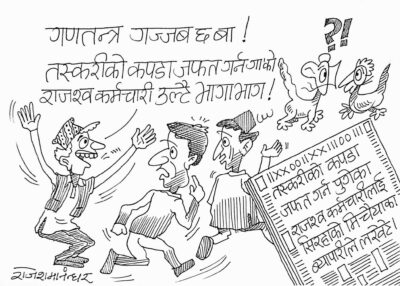 गणतन्त्र गज्जब छ बा !
तस्करीको कपडा जफत गर्न गा'को
राजश्व कर्मचारी उल्टै भागाभाग !
?!
IIXXOOIIXXIIIOOIII
तस्करीको कपडा
जफत गर्न पुगेका
राजश्व कर्मचारीलाई
सिरहाको मिर्चैयाका
ब्यापारीले लखेटे।
राजेशमानन्धर